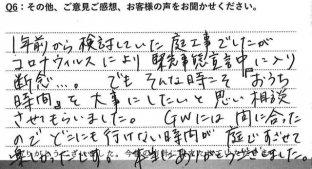 Q6：その他、ご意見ご感想、お客様の声をお聞かせください。
1年前から検討していた庭工事でしたが
コロナウィルスにより緊急事態宣言中に入り
断念…。でもそんな時こそ『おうち
時間』を大事にしたいと思い相談
させてもらいました。GWには間に合った
のでどこにも行けない時間が庭ですごせて
楽しかったです。本当にありがとうございました。